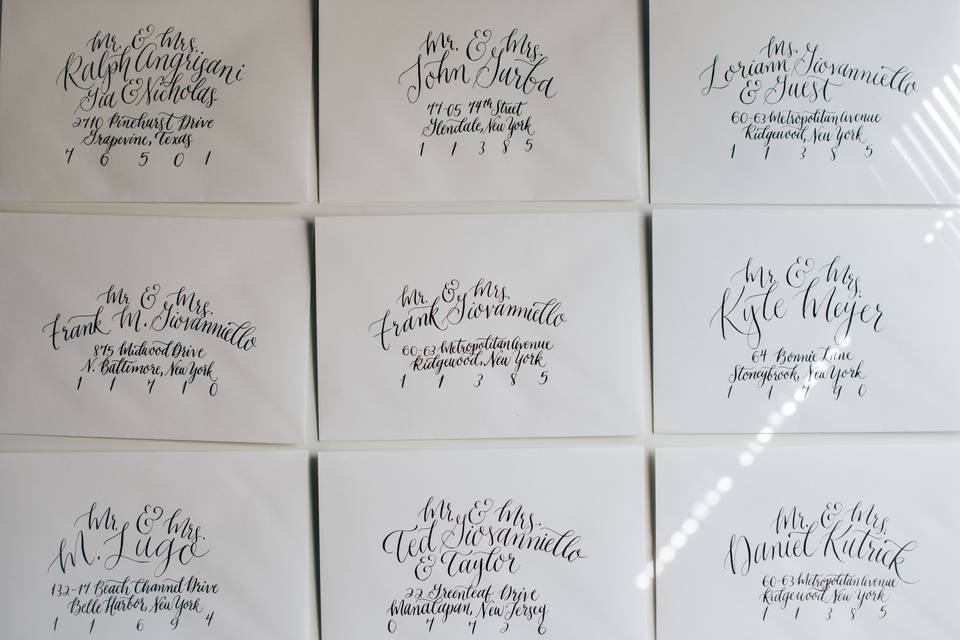 Mr. & Mrs.
Ralph Angrisani
Gia & Nicholas
2710 Pinehurst Drive
Grapevine, Texas
76501
Mr. & Mrs.
John Surba
77-05 74th Street
Glendale, New York
11385
Ms.
Loriann Giovanniello
& Guest
60-63 Metropolitan Avenue
Ridgewood, New York
11385
Mr. & Mrs.
Frank M. Giovanniello
875 Midwood Drive
N. Baltimore, New York
11710
Mr. & Mrs.
Frank Giovanniello
60-63 Metropolitan Avenue
Ridgewood, New York
11385
Mr. & Mrs.
Kyle Meyer
64 Bonnie Lane
Stoneybrook, New York
11790
Mr. & Mrs.
M. Lugo
132-17 Beach Channel Drive
Belle Harbor, New York
11694
Mr. & Mrs.
Ted Giovanniello
& Taylor
22 Greenleaf Drive
Manalapan, New Jersey
07726
Mr. & Mrs.
Daniel Kutrick
60-63 Metropolitan Avenue
Ridgewood, New York
11385